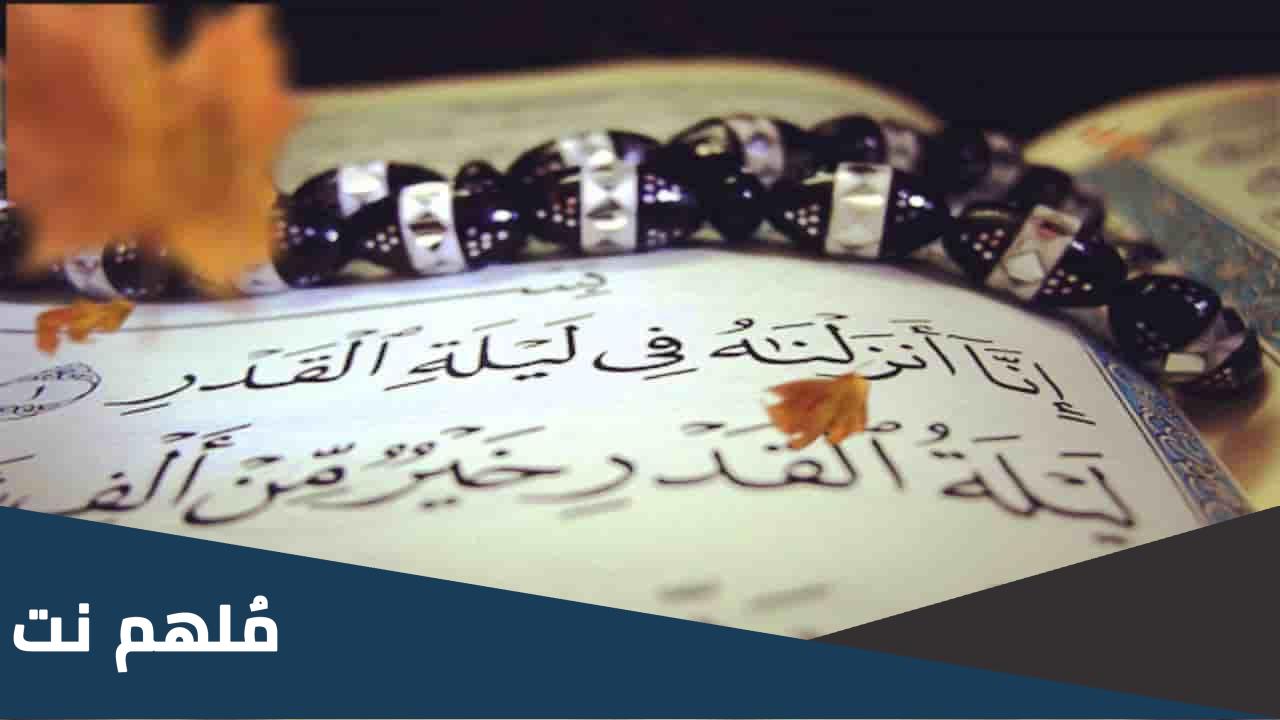 إِنَّآ أَنزَلْنَٰهُ فِى لَيْلَةِ ٱلْقَدْرِ ١
لَيْلَةُ ٱلْقَدْرِ خَيْرٌ مِّنْ أَلْفِ
مُلهم نت